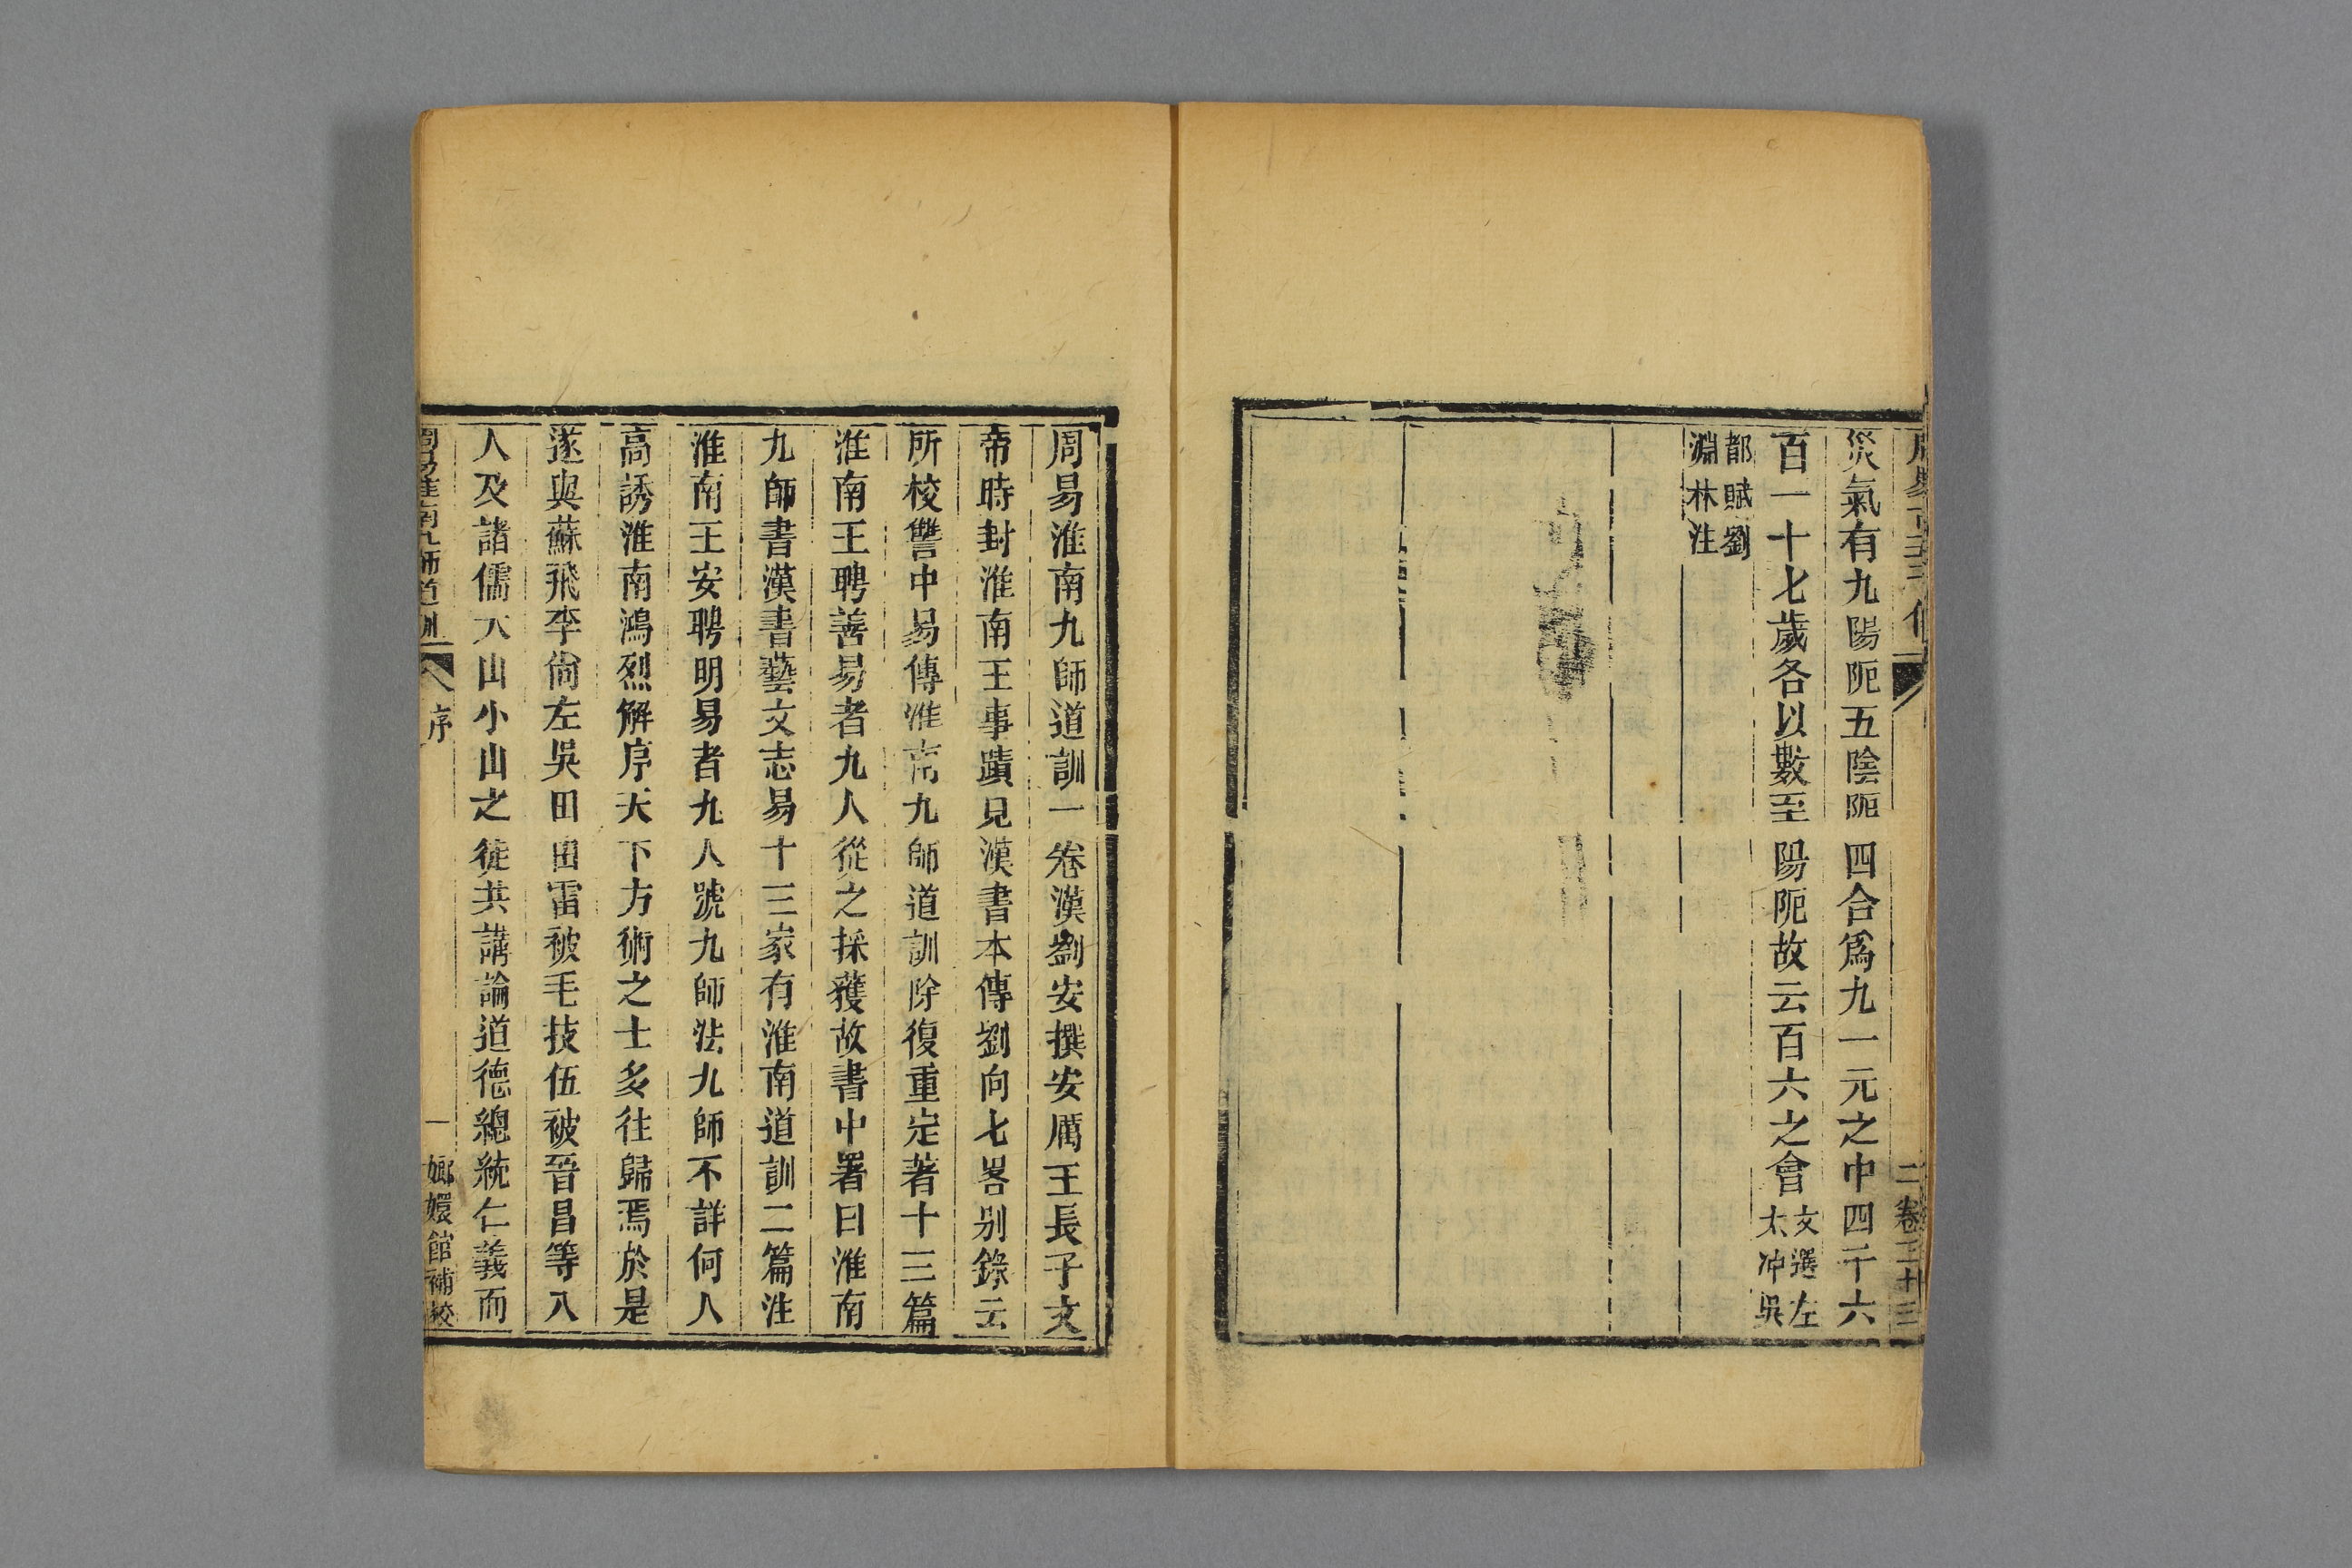 災氣有九陽阨五陰阨四合爲九一元之中四千六
百一十七歲各以數至陽阨故云百六之會文選左太冲吳
都賦劉淵林注
二卷三十三
周易淮南九師道訓一卷漢劉安撰安厲王長子文
帝時封淮南王事蹟見漢書本傳劉向七畧别錄云
所校讐中易傳淮南九師道訓除復重定著十三篇
淮南王聘善易者九人從之採獲故書中署曰淮南
九師書漢書藝文志易十三家有淮南道訓二篇注
淮南王安聘明易者九人號九師法九師不詳何人
高誘淮南鴻烈解序天下方術之士多往歸焉於是
遂與蘇飛李尙左吳田由雷被毛技伍被晉昌等八
人及諸儒大山小山之徒共講論道德總統仁義而
周易淮南九師道訓 序 一 嫏嬛館補校